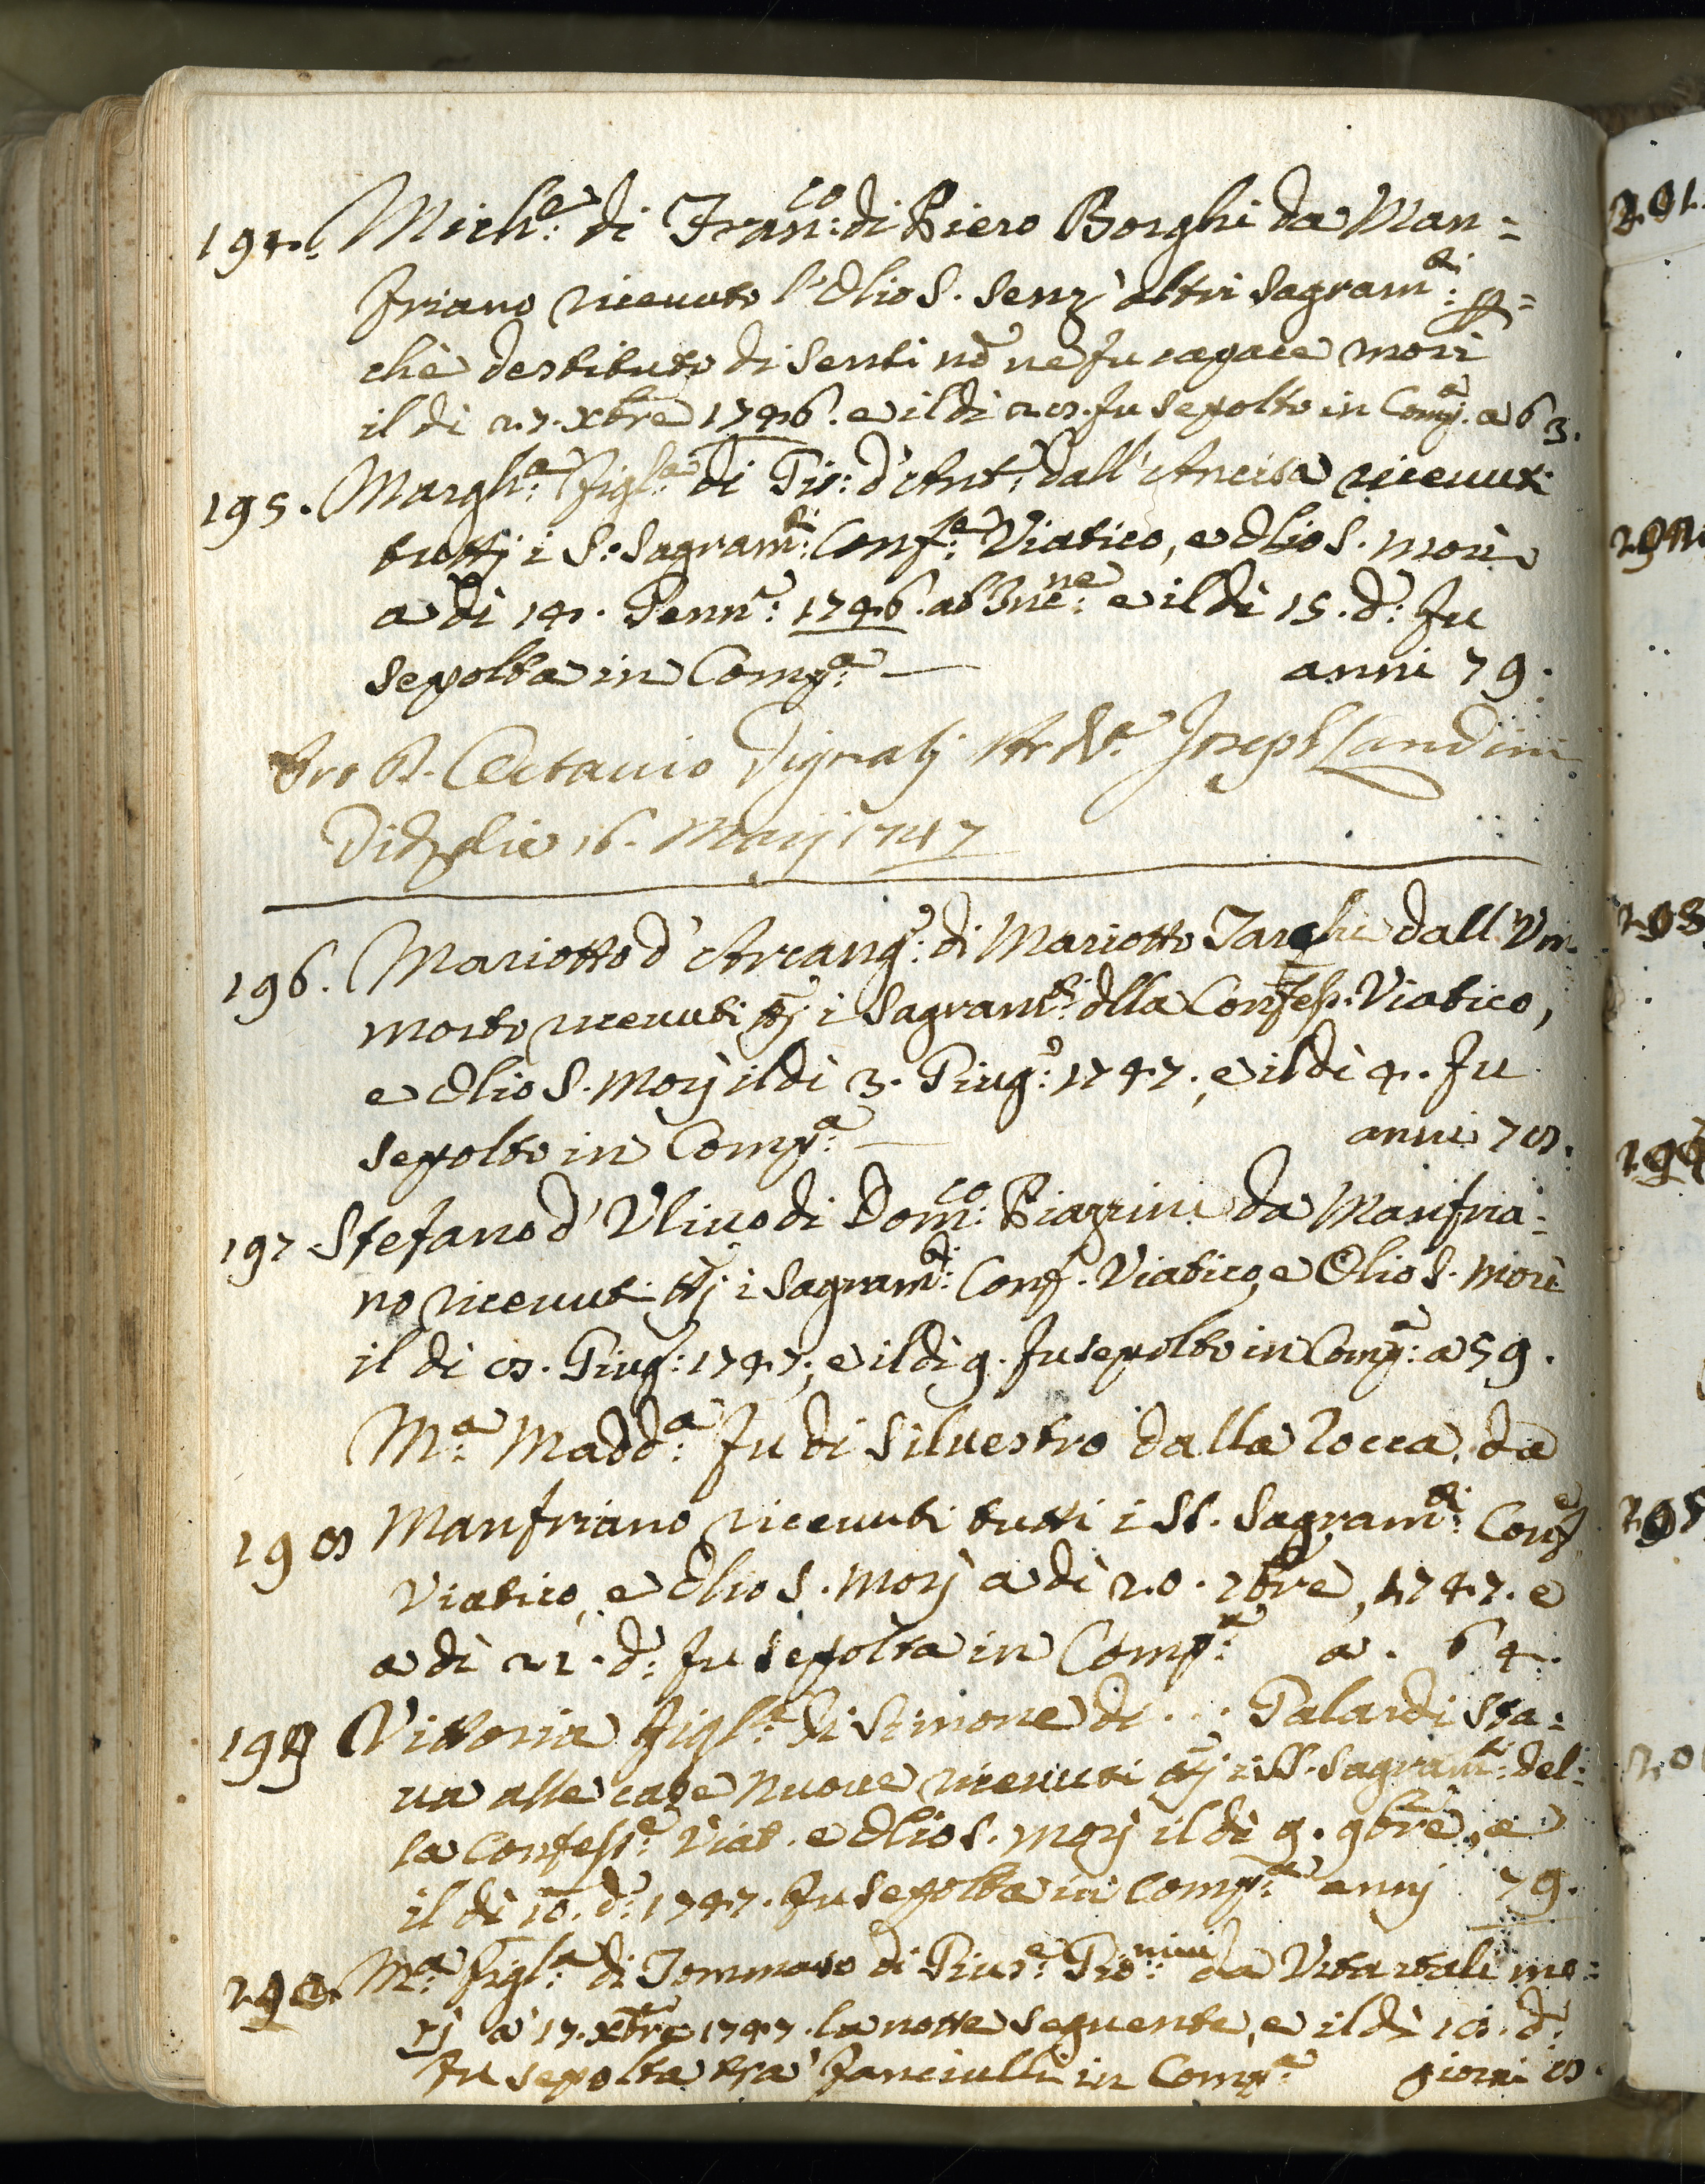 194. Mich:e di Fran:co di Piero Borghi da Man=
friano ricevuto l'Olio S. senz' altri Sagram:ti p=
chè destituto di senti nõ ne fu capace morì
il di 27. Xbre 1746. e il di 28. fu sepolto in Comp:a a 63.
195. Margh:a figl:a di Gio: d'Ant:o dall'Ancisa ricevuti
tuttj i S. Sagram:ti Conf:e Viatico, e Olio S. morì
a di 14. Genn:o 1746. ab Inc:ne e il di 15. d:o fu
sepolta in Comp:a — anni 79.
Pro D. Octavio Joseph Landini
Die 16. Maij 1747
196. Mariotto d'Arcang:o di Mariotto Tarchi dall'Vm
morto ricevuti ttj i Sagram:ti dlla Confess: Viatico,
e Olio S. Morj il dì 3. Giug:o 1747. e il dì 4. fu
sepolto in Comp:a — anni 78.
197 Stefano d'Vlivo di Dom:co Piagini da Manfria=
no ricevuti ttj i Sagram:ti Conf. Viatico, e Olio S. morì
il di 8. Giug: 1747; e il di 9. fu sepolto in Comp:a a 59.
M:a Madd:a fu di Silvestro dalla Rocca, da
198 Manfriano ricevuti tutti i SS. Sagram:ti Conf:e
Viatico, e Olio S. Morj a dì 20. 7bre, 1747. e
a dì 21. d:o fu sepolta in Comp:a a. 64.
199 Vittoria figl:a di Simone di ... Galardi sta=
va alle case nuove ricevuti ttj i SS. Sagram:ti del=
la Confess:e Viat. e Olio S. Morj il dì 9. 9bre, e
il dì 10. d:o 1747. fu sepolta in Comp:a annj 79.
200. M:a figl:a di Tommaso di Gius:e Gio:nnini da mo=
rj a 17. Xbre 1747. la notte seguente, e il dì 18. d:o
fu sepolta tra' fanciulli in Comp:a giorni 8.
201.
202
203